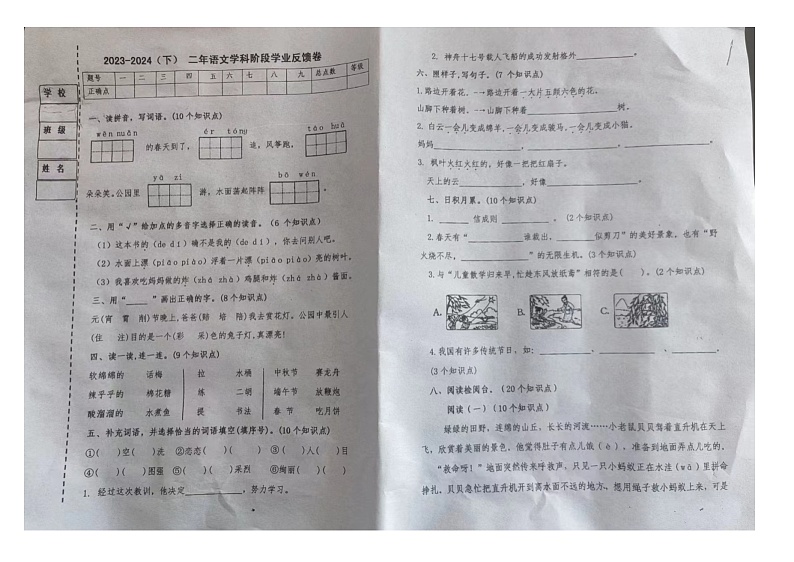 2023-2024（下） 二年语文学科阶段学业反馈卷
题号 一 二 三 四 五 六 七 八 九 总点数 等级
正确点
学 校
班 级
姓 名
一、读拼音，写词语。(10 个知识点)
wēn nuǎn ér tóng táo huā
的春天到了， 追，风筝跑，
yā zi bō wén
朵朵笑。公园里 游，水面荡起阵阵 。
二、用“√”给加点的多音字选择正确的读音。（6 个知识点）
（1）这本书的（de dí）确不是我的（de dí），你去问别人吧。
（2）水面上漂（piāo piào）浮着一片漂（piāo piào）亮的树叶。
（3）我喜欢吃妈妈做的炸（zhá zhà）鸡腿和炸（zhá zhà）酱面。
三、用“____ ”画出正确的字。(8 个知识点)
元(宵 霄 削)节晚上,爸爸(赔 培 陪)我去赏花灯。公园中最引人
(住 注)目的是一个(彩 采)色的兔子灯,真漂亮!
四、读一读,连一连。(9 个知识点)
软绵绵的 话梅 拉 水桶 中秋节 赛龙舟
辣乎乎的 棉花糖 练 二胡 端午节 放鞭炮
酸溜溜的 水煮鱼 提 书法 春 节 吃月饼
五、补充词语，并选择恰当的词语填空(填序号)。(10个知识点)
①( )空( )洗 ②恋恋( )( ) ③( )人( )目
④( )( )图强 ⑤( )( )采烈 ⑥绚丽( )( )
1. 经过这次教训，他决定____________，努力学习。
2. 神舟十七号载人飞船的成功发射格外____________。
六、照样子,写句子。(7 个知识点)
1.路边开着花。-→路边开着一大片五颜六色的花。
山脚下种着树。-→山脚下种着____________________树。
2. 白云一会儿变成绵羊,一会儿变成骏马,一会儿变成小猫。
妈妈____________________,____________________,____________________.
3. 枫叶火红火红的，好像一把把扇子。
天上的云____________，好像____________________。
七、日积月累。(10个知识点)
1. ______ 信成则 __________ 。（2 个知识点）
2.春天有“____________谁裁出，________似剪刀”的美好景象，也有“野
火烧不尽，______________ ”的无限生机。(3 个知识点)
3.与“儿童散学归来早,忙趁东风放纸鸢”相符的是( )。(2个知识点)
A. B. C.
4.我国有许多传统节日，如：____________、____________、____________。
(3个知识点)
八、阅读检阅台。（20 个知识点）
阅读（一）(10个知识点)
绿绿的田野，连绵的山丘，长长的河流……小老鼠贝贝驾着直升机在天上
飞，欣赏着美丽的景色，他觉得肚子有点儿饿（è），准备到地面弄点儿吃的。
“救命呀！”地面突然传来呼救声，只见一只小蚂蚁正在水洼（wā）里拼命
挣扎，贝贝急忙把直升机开到离水面不远的地方，想用绳子救小蚂蚁上来，可是